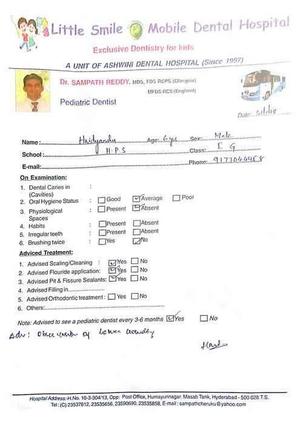 Little Smile Mobile Dental Hospital
Exclusive Dentistry for kids
A UNIT OF ASHWINI DENTAL HOSPITAL (Since 1997)
Dr. SAMPATH REDDY, MDS, FDS RCPS (Glasgow)
MFDS RCS (England)
Pediatric Dentist
Date:
Name: Age: 6 yrs Sex: Male
School: H.P.S Class:
E-mail: Phone:
On Examination:
1. Dental Caries in :
(Cavities)
2. Oral Hygiene Status : Good Average Poor
3. Physiological : Present Absent
Spaces
4. Habits : Present Absent
5. Irregular teeth : Present Absent
6. Brushing twice : Yes No
Adviced Treatment:
1. Advised Scaling/Cleaning : Yes No
2. Advised Flouride application: Yes No
3. Advised Pit & Fissure Sealants: Yes No
4. Advised Filling in
5. Advised Orthodontic treatment : Yes No
6. Others:
Note: Advised to see a pediatric dentist every 3-6 months Yes No
Adv: Observation of lower crowding
Hospital Address: H.No. 10-3-304/13, Opp: Post Office, Humayunnagar, Masab Tank, Hyderabad - 500 028 T.S.
Tel: (C) 23537812, 23535656, 23590690, 23535858, E-mail : sampathcheruku@yahoo.com